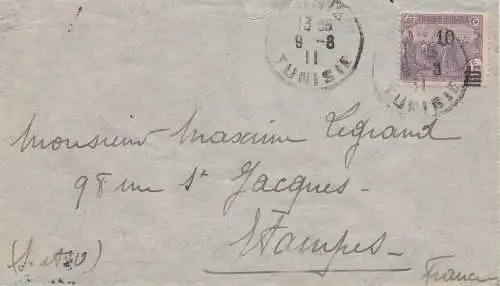 13 35
9 - 8
11
TUNISIE
10
TUNISIE
Monsieur Maxime Legrand
98 rue St Jacques
Etampes
(S. et O)
France